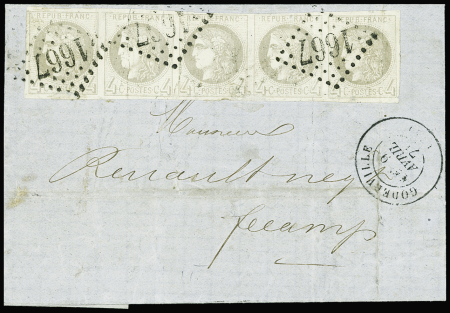 REPUB·FRANC· REPUB·FRANC· REPUB·FRANC· REPUB·FRANC· REPUB·FRANC·
1667 1667 1667
4 POSTES C. 4 4 C. POSTES 4 C. 4 C. POSTES 4 C.
Monsieur
Renault neg
fecamp
GODERVILLE
AVRIL
71